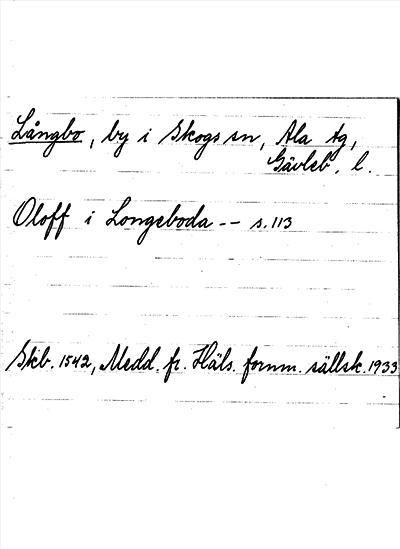 Långbo, by i Skogs sn, Ala tg,
Gävleb. l.
Oloff i Longeboda -- s. 113
Skb. 1542, Medd. fr. Häls. fornm. sällsk. 1933